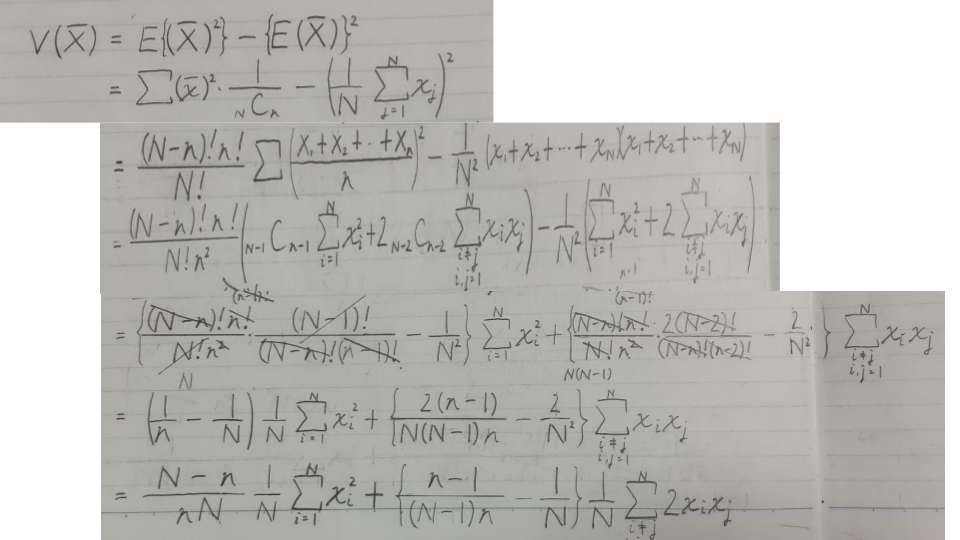 V(X̄) = E{(X̄)²} − {E(X̄)}²
= Σ(x̄)² · 1/_N C_n − (1/N Σ_{j=1}^{N} x_j)²
= (N−n)!n!/N! Σ ((X₁+X₂+··+Xₙ)/n)² − 1/N² (x₁+x₂+···+x_N)(x₁+x₂+···+x_N)
= (N−n)!n!/N!n² (_{N−1}C_{n−1} Σ_{i=1}^{N} x_i² + 2 _{N−2}C_{n−2} Σ_{i≠j i,j=1}^{N} x_i x_j) − 1/N² (Σ_{i=1}^{N} x_i² + 2 Σ_{i≠j i,j=1}^{N} x_i x_j)
= {(N−n)!n!/N!n² · (N−1)!/(N−n)!(n−1)! − 1/N²} Σ_{i=1}^{N} x_i² + {(N−n)!n!/N!n² · 2(N−2)!/(N−n)!(n−2)! − 2/N²} Σ_{i≠j i,j=1}^{N} x_i x_j
= (1/n − 1/N) 1/N Σ_{i=1}^{N} x_i² + {2(n−1)/N(N−1)n − 2/N²} Σ_{i≠j i,j=1}^{N} x_i x_j
= (N−n)/nN 1/N Σ_{i=1}^{N} x_i² + {(n−1)/(N−1)n − 1/N} 1/N Σ_{i≠j}^{N} 2x_i x_j